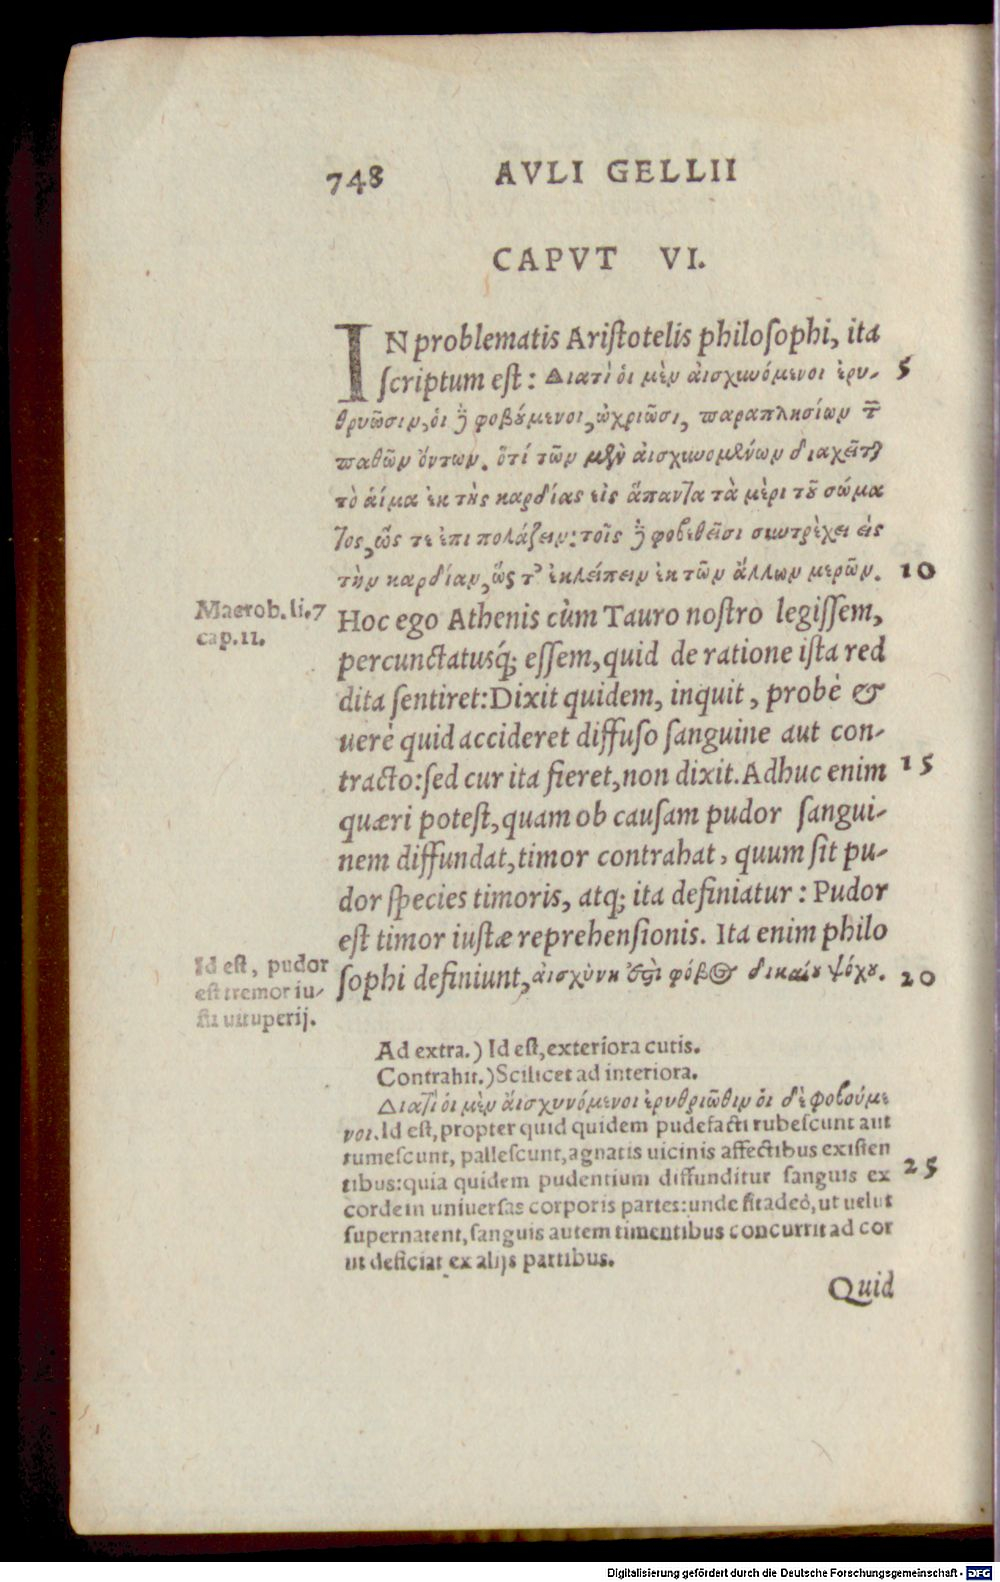 748 AVLI GELLII
CAPVT VI.
IN problematis Aristotelis philosophi, ita
scriptum est: Διατὶ ὁι μὲν ἀισχυνόμενοι ἐρυ- 5
θρυῶσιν, ὁι ὃ φοβούμενοι, ὠχριῶσι, παραπλησίων τ̃
παθῶν ὄντων. ὅτί τῶν μὲν ἀισχυνομένων διαχεῖται
τὸ ἁίμα ἐκ τῆς καρδίας εἰς ἅπαντα τὰ μὲρι τοῦ σώμα
τος, ὥς τε ἐπι πολάζειν: τοῖς ὃ φοβεθεῖσι συντρὲχει ἐις
τὴν καρδίαν, ὥς τ' ἐκλείπειν ἐκ τῶν ἄλλων μερῶν. 10
Macrob. li. 7
cap. 11.
Hoc ego Athenis cùm Tauro nostro legissem,
percunctatusq; essem, quid de ratione ista red
dita sentiret: Dixit quidem, inquit, probè &
uerè quid accideret diffuso sanguine aut con-
tracto: sed cur ita fieret, non dixit. Adhuc enim 15
quæri potest, quam ob causam pudor sangui-
nem diffundat, timor contrahat, quum sit pu-
dor species timoris, atq; ita definiatur: Pudor
est timor iustæ reprehensionis. Ita enim philo
sophi definiunt, ἀισχύνη ἐστὶ φόβος δικαίου ψόγου. 20
Id est, pudor
est tremor iu-
sti uituperij.
Ad extra.) Id est, exteriora cutis.
Contrahit.) Scilicet ad interiora.
Διατὶ ὁι μὲν ἀισχυνόμενοι ἐρυθριῶθιν ὁι δὲ φοβούμε
νοι. Id est, propter quid quidem pudefacti rubescunt aut
tumescunt, pallescunt, agnatis uicinis affectibus existen
tibus: quia quidem pudentium diffunditur sanguis ex 25
corde in uniuersas corporis partes: unde fit adeò, ut uelut
supernatent, sanguis autem timentibus concurrit ad cor
ut deficiat ex alijs partibus.
Quid
Digitalisierung gefördert durch die Deutsche Forschungsgemeinschaft - DFG